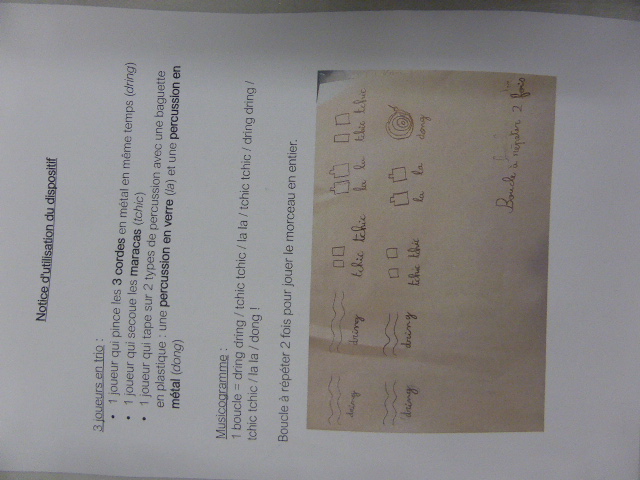 Notice d'utilisation du dispositif
3 joueurs en trio :
• 1 joueur qui pince les 3 cordes en métal en même temps (dring)
• 1 joueur qui secoue les maracas (tchic)
• 1 joueur qui tape sur 2 types de percussion avec une baguette
en plastique : une percussion en verre (la) et une percussion en
métal (dong)
Musicogramme :
1 boucle = dring dring / tchic tchic / la la / tchic tchic / dring dring /
tchic tchic / la la / dong !
Boucle à répéter 2 fois pour jouer le morceau en entier.
dring dring tchic tchic la la tchic tchic
dring dring tchic tchic la la dong
Boucle à répéter 2 fois